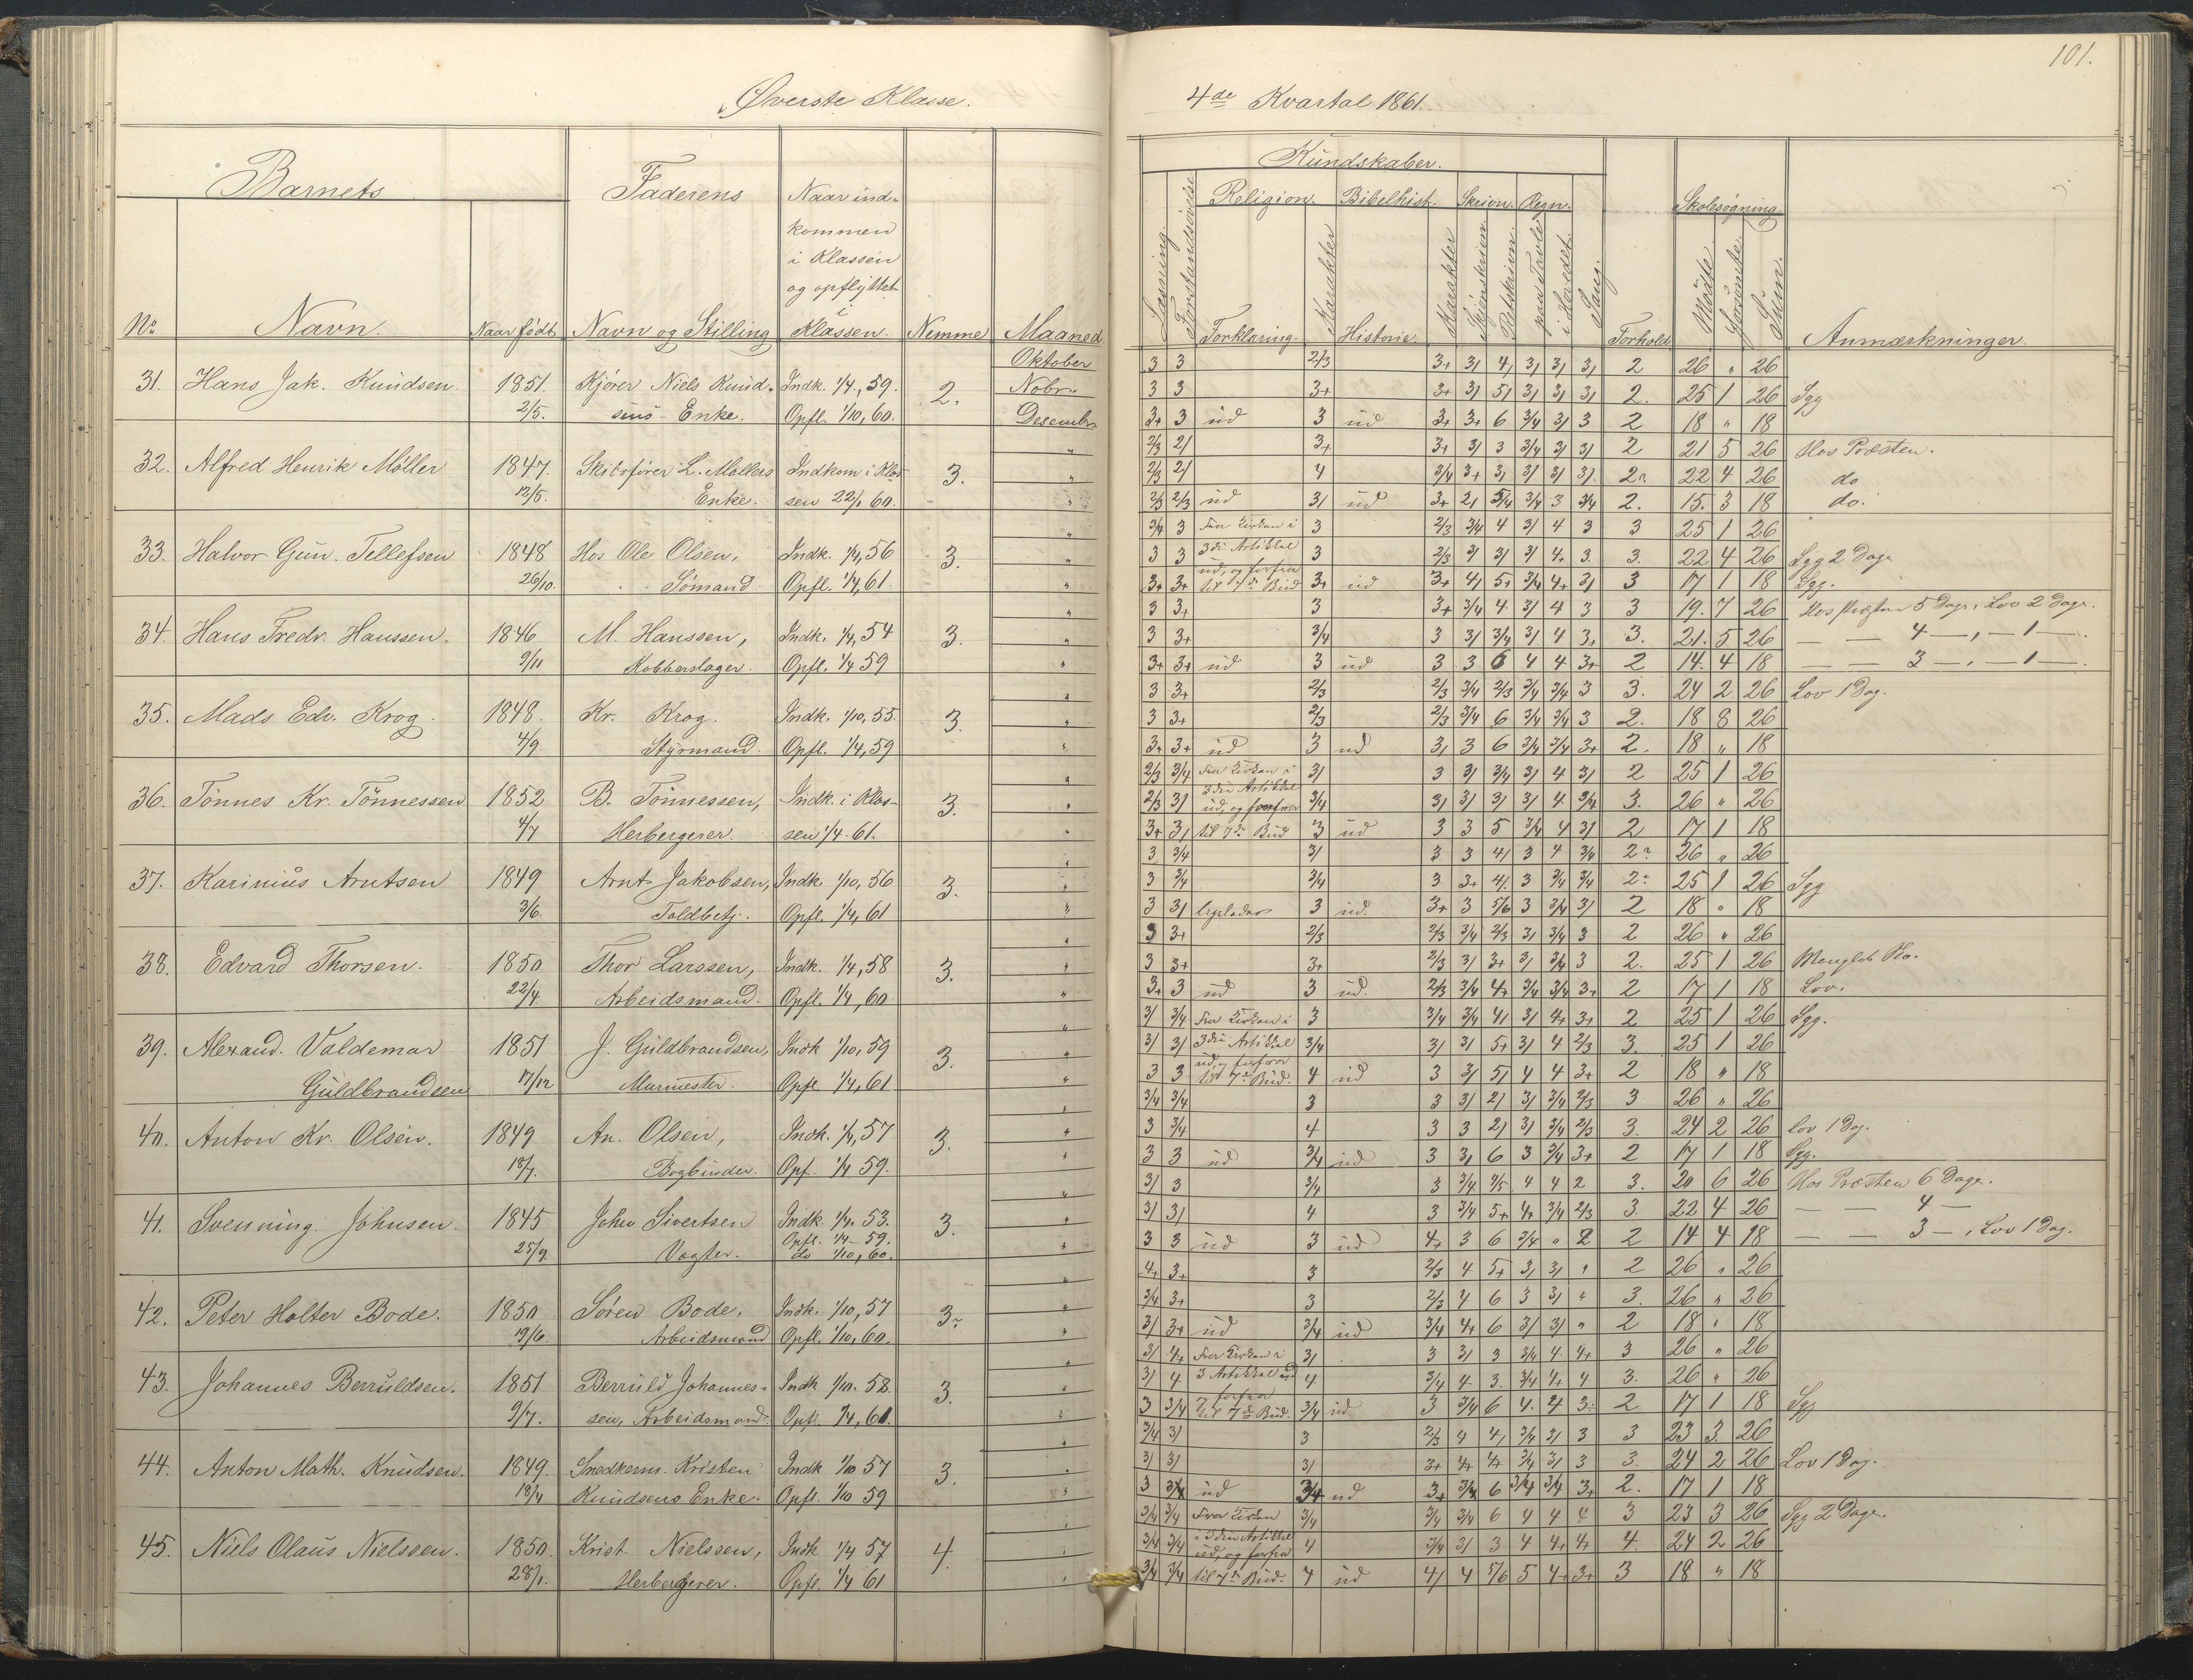 Øverste Klasse.
Barnets
Faderens
Naar ind-
kommen
i Klassen
og opflyttet
i
No Navn. Naar født Navn og Stilling Klassen. Nemme Maaned
Oktober
31. Hans Jak. Knudsen. 1851. Kjører Niels Knud- Indk. 1/4, 59. 2. Nobr.
2/5. sens Enke. Opfl. 1/10, 60. Desembr
32. Alfred Henrik Møller 1847. Skibsfører L. Møllers Indkom i Klas- 3. "
12/5. Enke. sen 22/1 60. "
33. Halvor Gun. Tellefsen 1848 Hos Ole Olsen, Indk. 1/4, 56 3. "
26/10. Sømand. Opfl. 1/4, 61. "
34. Hans Fredr. Hanssen. 1846 M. Hanssen, Indk. 1/4, 54 3. "
9/11 Kobberslager. Opfl. 1/4 59 "
35. Mads Edv. Krog. 1848. Kr. Krog. Indk. 1/10, 55. 3. "
4/9. Styrmand. Opfl. 1/4, 59 "
36. Tönnes Kr. Tönnessen 1852 B. Tönnessen, Indk. i Klas- 3. "
4/7 Herbergerer. sen 1/4. 61. "
37. Karinius Arntsen 1849 Arnt Jakobsen, Indk. 1/10, 56 3. "
3/6. Toldbetj. Opfl. 1/4, 61 "
38. Edvard Thorsen. 1850 Thor Larssen, Indk. 1/4, 58 3. "
22/4. Arbeidsmand. Opfl. 1/4, 60 "
39. Alexand. Valdemar 1851 J. Guldbrandsen, Indk 1/10, 59 3. "
Guldbrandsen 17/12 Murmester. Opfl. 1/4, 61 "
40. Anton Kr. Olsen. 1849 An. Olsen, Indk. 1/4, 57 3. "
18/7. Bogbinder. Opf. 1/4 59. "
41. Svenning Johnsen. 1845 John Sivertsen Indk. 1/4. 53. 3. "
Opfl. 1/4 - 59.
25/9. Vægter. do 1/10, 60. "
42. Peter Holter Bode. 1850 Søren Bode, Indk. 1/10, 57 3. "
19/6. Arbeidsmand Opfl. 1/10, 60. "
43. Johannes Berruldsen. 1851 Berruld Johannes- Indk 1/10. 58. 3. "
9/7. sen, Arbeidsmand. Opfl. 1/4, 61. "
44. Anton Math. Knudsen. 1849. Snedkerm. Kristen Indk 1/10 57 3. "
18/4 Knudsens Enke. Opfl. 1/10 59 "
45. Niels Olaus Nielssen. 1850. Krist. Nielssen, Indk 1/4 57 4. "
28/1. Herbergerer. Opfl. 1/4 61 "
101.
4de Kvartal 1861.
Kundskaber.
Religion. Bibelhist. Skrivn. Regn. Skolesøgning.
Læsning. Forstandsøvelse Forklaring. Karakter Historie Karakter Skjønskrivn. Retskrivn. paa Tavle i Hovedet. Sang. Forhold Mødte. Forsømte. Sum. Anmærkninger
3 3 2/3 3+ 3/ 4/ 3/ 3/ 3/ 2 26 " 26
3 3 3+ 3+ 3/ 5/ 3/ 3/ 3/ 2. 25 1 26 Syg
3+ 3 ud 3 ud 3+ 3+ 6 3/4 3/ 3 2 18 " 18
2/3 2/ 3+ 3+ 3/ 3 3/4 3/ 3/ 2 21 5 26 Hos Præsten.
2/3 2/ 4 3/4 3+ 3/ 3/ 3/ 3/. 2. 22 4 26 do
2/3 2/3 ud 3/ ud 3+ 2/ 3/4 3/4 3 3/4 2. 15. 3 18 do.
3/4 3 3 2/3 3/4 4 3/ 4 3 3 25 1 26
3 3 3die Artikkel 3 2/3 3/ 3/ 3/ 4. 3. 3. 22 4 26 Syg 2 Dage
3+ 3+ ud, og forfra til 7de Bud 3+ ud 3+ 4/ 5+ 3/4 4+ 3/ 3 17 1 18 Syg.
3 3+ 3 3+ 3/4 4 3/ 4 3 3 19. 7 26 Hos Præsten 5 Dage, Lov 2 Dage.
3 3+ 3/4 3 3/ 3/4 3/ 4 3+ 3. 21. 5 26 — — 4 —, — 1 —.
3+ 3+ ud 3 ud 3 3 6 4 4 3+ 2 14. 4 18 — — 3 —, — 1 —.
3 3+ 2/3 2/3 3/4 2/3 3/4 3/4 3 3. 24 2. 26 Lov 1 Dag.
3 3+ 2/3 2/3 3/4 6 3/4 3/4 3 2. 18 8 26
3+ 3+ ud 3 ud 3/ 3 6 3/4 3/4 3+ 2. 18 " 18
2/3 3/4 3/ 3 3/ 3/4 3/ 4 3/ 2 25 1 26
2/3 3/ 3die Artikkel ud, og forfra 3/4 3/ 3/ 3/ 3/ 4. 3/4 3. 26 " 26
3+ 3/ til 7de Bud 3 ud 3 3 5 3/4 4 3/ 2 17 1 18
3 3/4 3/ 3 3 4/ 3 4 3/4 2 26 " 26
3 3/4 3/4 3 3+ 4/. 3 3/4 3/4 2 25 1 26 Syg
3 3/ 3 ud. 3+ 3 5/6 3 3/4 3/ 2 18 " 18
3 3+ 2/3 2/3 3/4 2/3 3/ 3/4 3 2 26 " 26
3 3+ 3+ 2/3 3/ 3+ 3/ 3/4 3 2. 25 1 26
3+ 3 ud 3 ud. 2/3 3/4 4+ 3/4 3/4 3+ 2 17 1 18 Lov.
3/ 3/4 3 3/4 3/4 4/ 3/ 4+ 3+ 2 25 1 26 Syg.
3/ 3/ 3die Artikkel 3/4 3/ 3/ 5+ 3/ 4 2/3 3. 25 1 26
3 3 ud, og forfra til 7de Bud. 4 ud 3 3/ 5/ 4 4 3+ 2 18 " 18
3/4 3/4 3 3 3/ 2/ 3/ 3/4 2/3 3 26 " 26
3 3/4 4 3 3 2/ 3/ 3/4 2/3 3. 24 2 26 lov 1 Dag.
3 3 ud 3/4 ud 3 3/ 6 3 3/4 3+ 2 17 1 18 Syg.
3/ 3 3/4 3 3/4 4/5 4 4 2 3. 20 6 26 Hos Præsten 6 Dage.
3/ 3/ 4 3 3/4 5+ 4+ 3/4 2/3 3. 22 4 26 — — 4 —
3 3 ud 3 ud 4+ 3 6 3/4 " 2 2 14 4 18 — — 3 —, Lov 1 Dag.
4+ 3+ 3 2/3 4 5+ 3/ 3/ " 2 26 " 26
3/4 3+ 3 2/3 4 6 3 3/ " 3. 26 " 26
3/ 3+ ud 3/4 ud 3/4 4+ 6 3/ 3/ " 2 18 " 18
3/ 4+ 3/ 3 3/ 3 3/4 4. 4+ 3 26 " 26
3/ 4 3 Artikkel ud 4 3/4 4. 3. 3/4 4+ 4 3. 26 " 26
3 3/4 og forfra til 7de Bud. 3/4 ud 3 3/4 6 4. 4 3. 2 17 1 18 Syg
3/4 3/ 3 2/3 4 4/ 3/4 3/ 3 3 23 3. 26
3/ 3/ 3/ 3+ 4+ 4+ 3/4 3/ 3 3. 24 2 26 Lov 1 Dag.
3 3/4 ud 3/4 ud 3+ 3/4 6 3/4 3/4 3+ 2. 17 1 18
3/4 3/4 3/4 3/4 3/4 6 4 4 4 3 23 3 26 Syg 2 Dage.
3/4 3/4 i 3die Artikkel ud, og forfra 4 3/4 3/ 3 4 4+ 4+ 4. 24 2 26
3/4 3/4 til 7de Bud. 4 ud 4/ 4 5/6 5 4+ 3+ 3 18 " 18